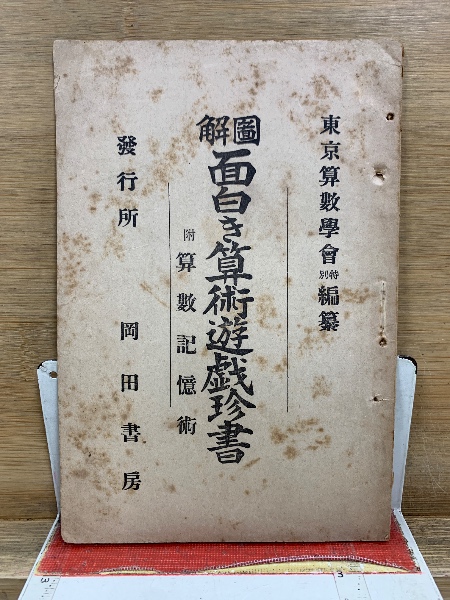 東京算數學會特別編纂
圖解
面白き算術遊戯珍書
附 算數記憶術
發行所 岡田書房
3
3